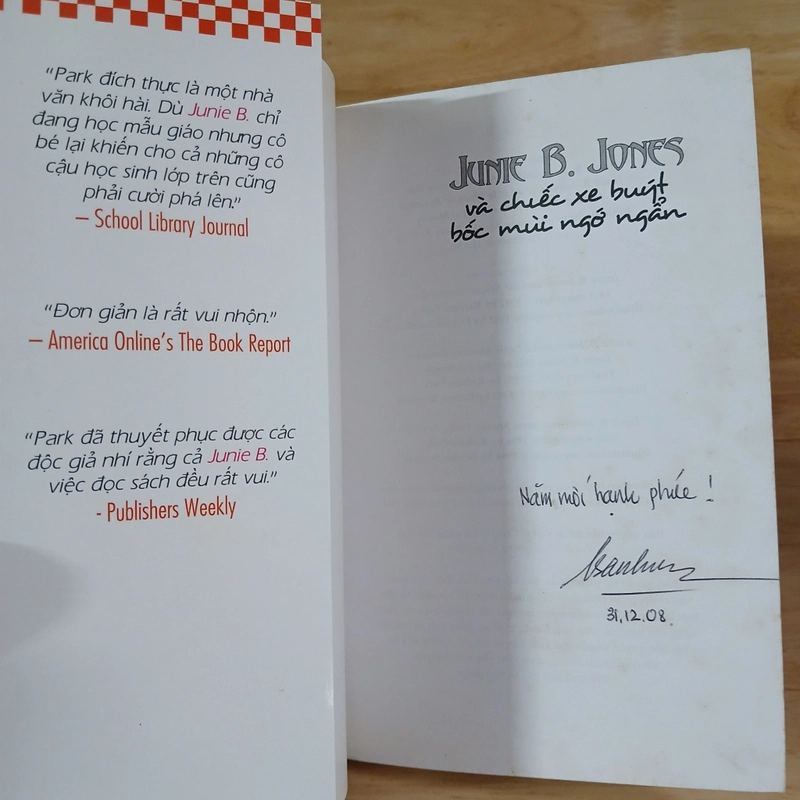 “Park đích thực là một nhà
văn khôi hài. Dù Junie B. chỉ
đang học mẫu giáo nhưng cô
bé lại khiến cho cả những cô
cậu học sinh lớp trên cũng
phải cười phá lên.”
– School Library Journal
“Đơn giản là rất vui nhộn.”
– America Online's The Book Report
“Park đã thuyết phục được các
độc giả nhí rằng cả Junie B. và
việc đọc sách đều rất vui.”
- Publishers Weekly
JUNIE B. JONES
và chiếc xe buýt
bốc mùi ngớ ngẩn
Năm mới hạnh phúc !
31.12.08